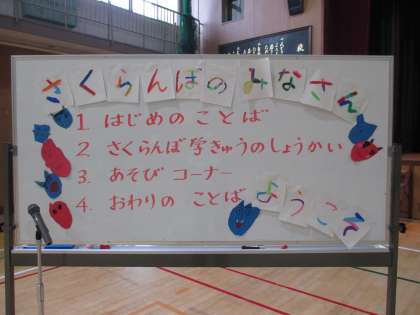 さくらんぼのみなさん
1. はじめのことば
2. さくらんぼ学きゅうのしょうかい
3. あそび コーナー
4. おわりの ことば
ようこそ